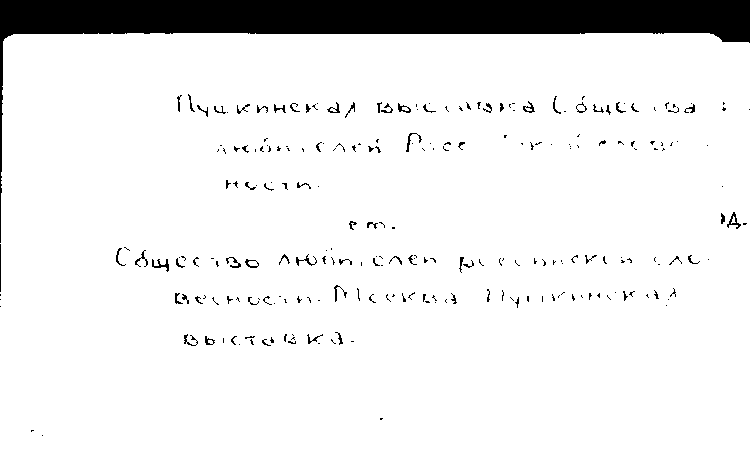 Пушкинская выставка Общества
любителей Российской словес-
ности.
см.
Общество любителей российской сло-
весности. Москва. Пушкинская
выставка.